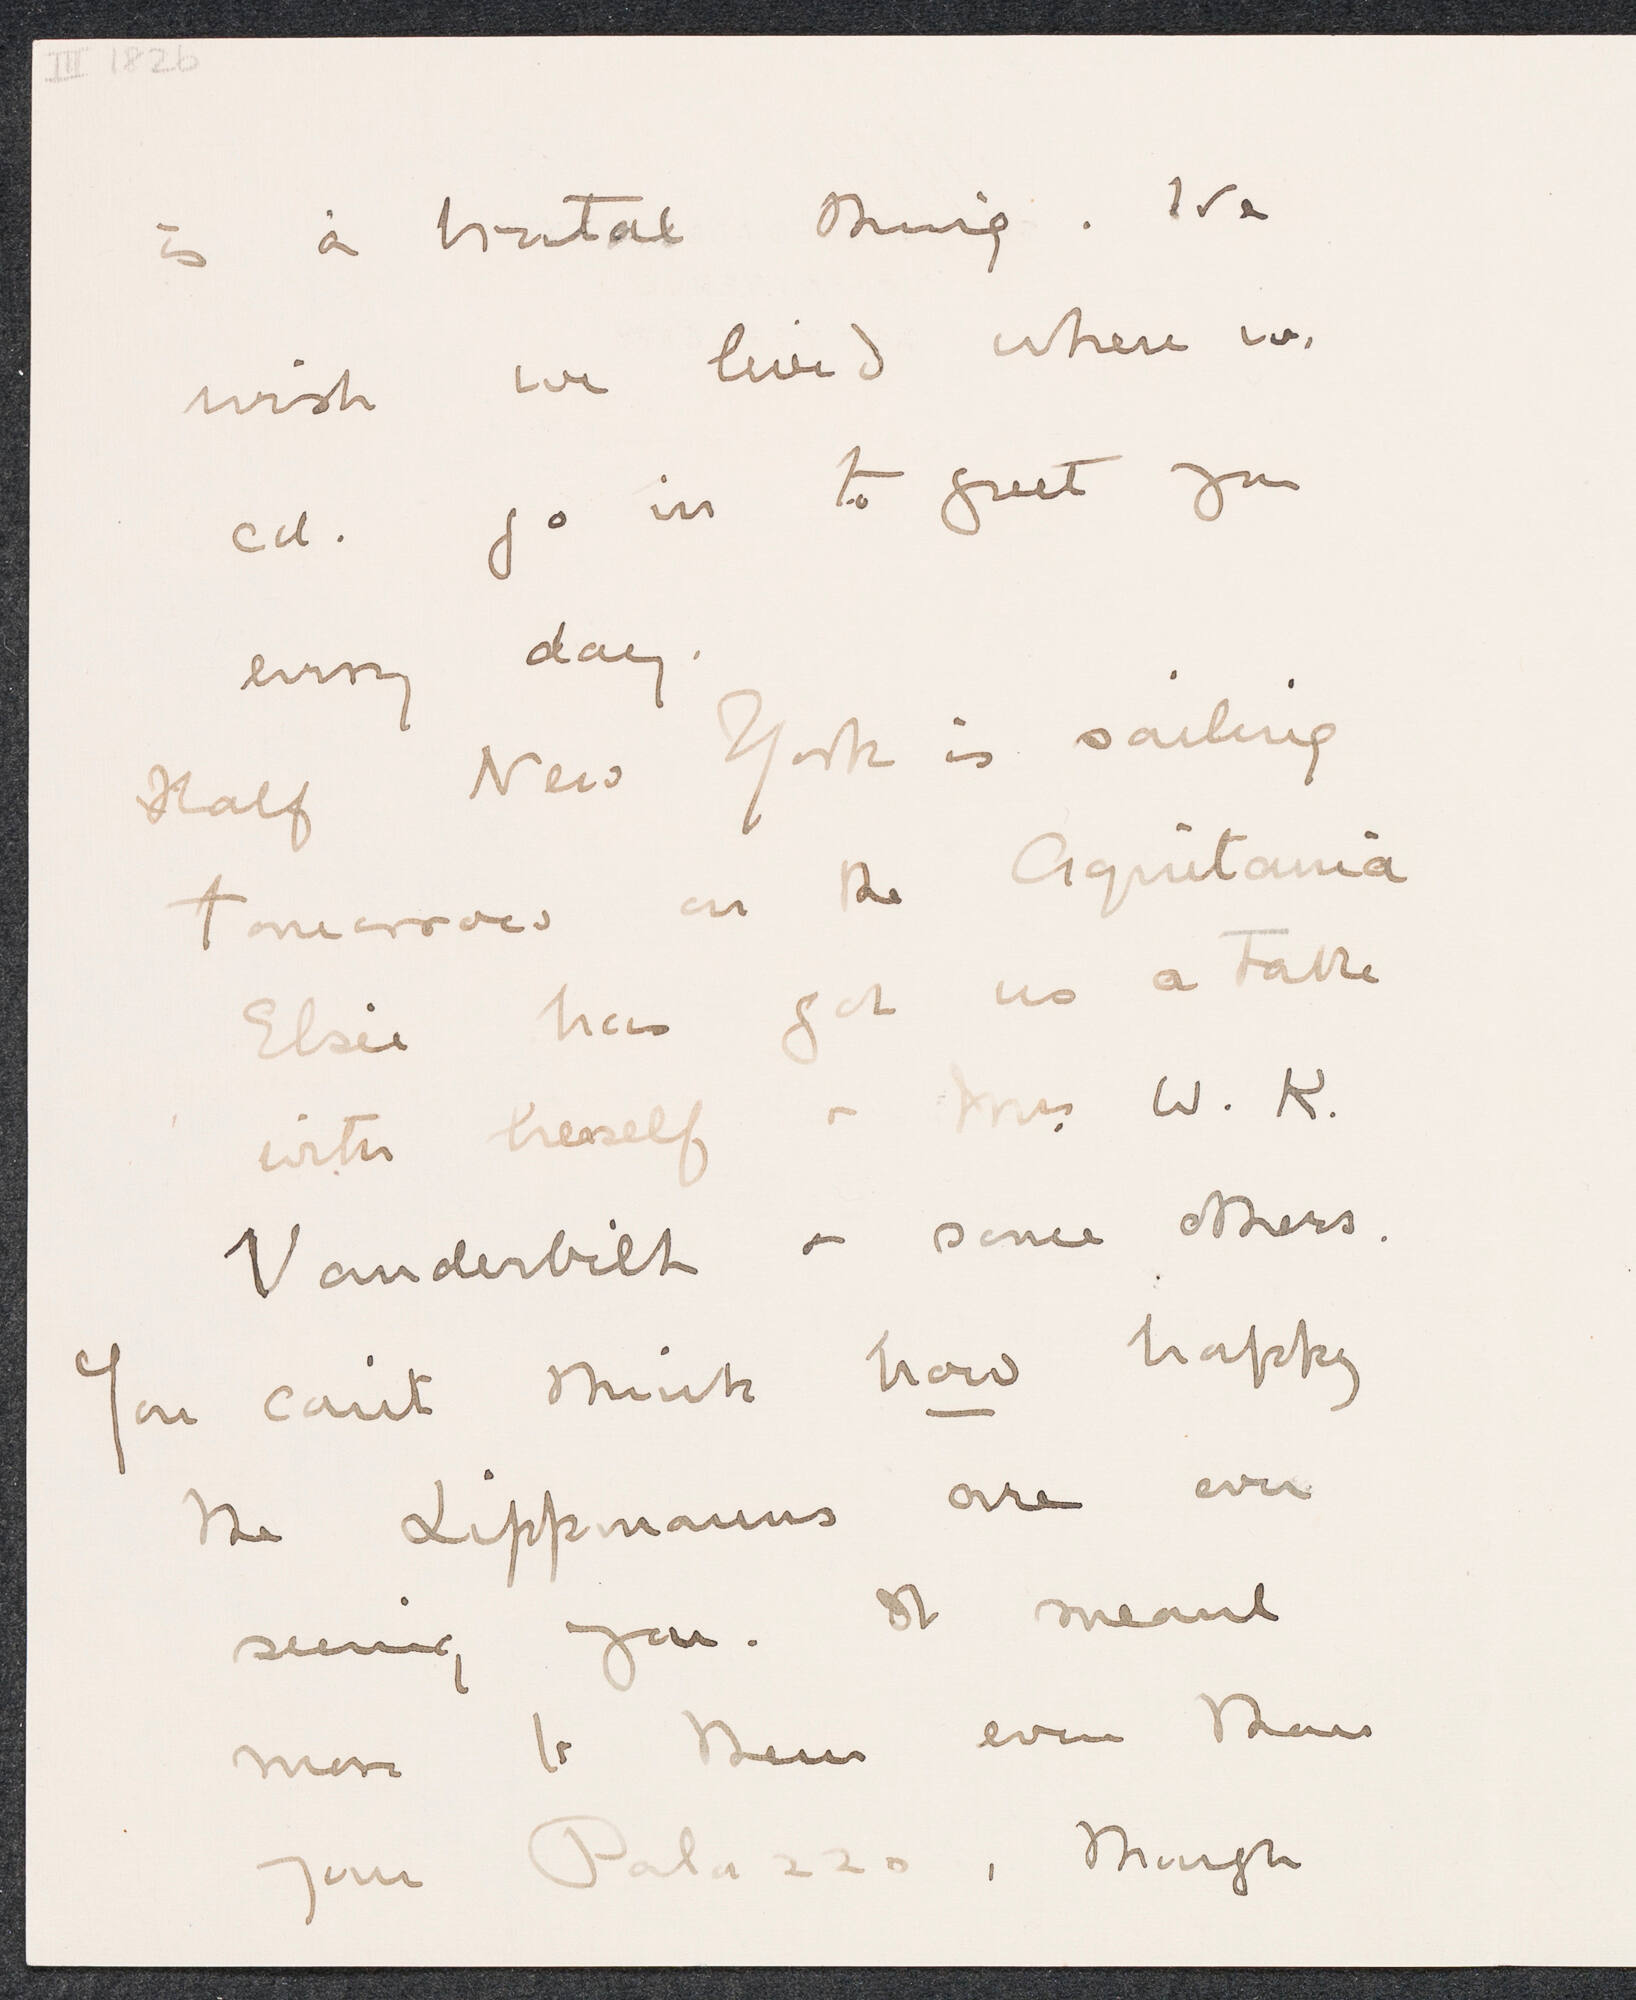 III 182b
is a brutal thing. We
wish we lived where we
cd. go in to greet you
every day.
Half New York is sailing
tomorrow on the Aquitania
Elsie has got us a table
with herself + Mrs W. K.
Vanderbilt + some others.
You can't think how happy
the Lippmanns are over
seeing you. It meant
more to them even than
your Palazzo, though